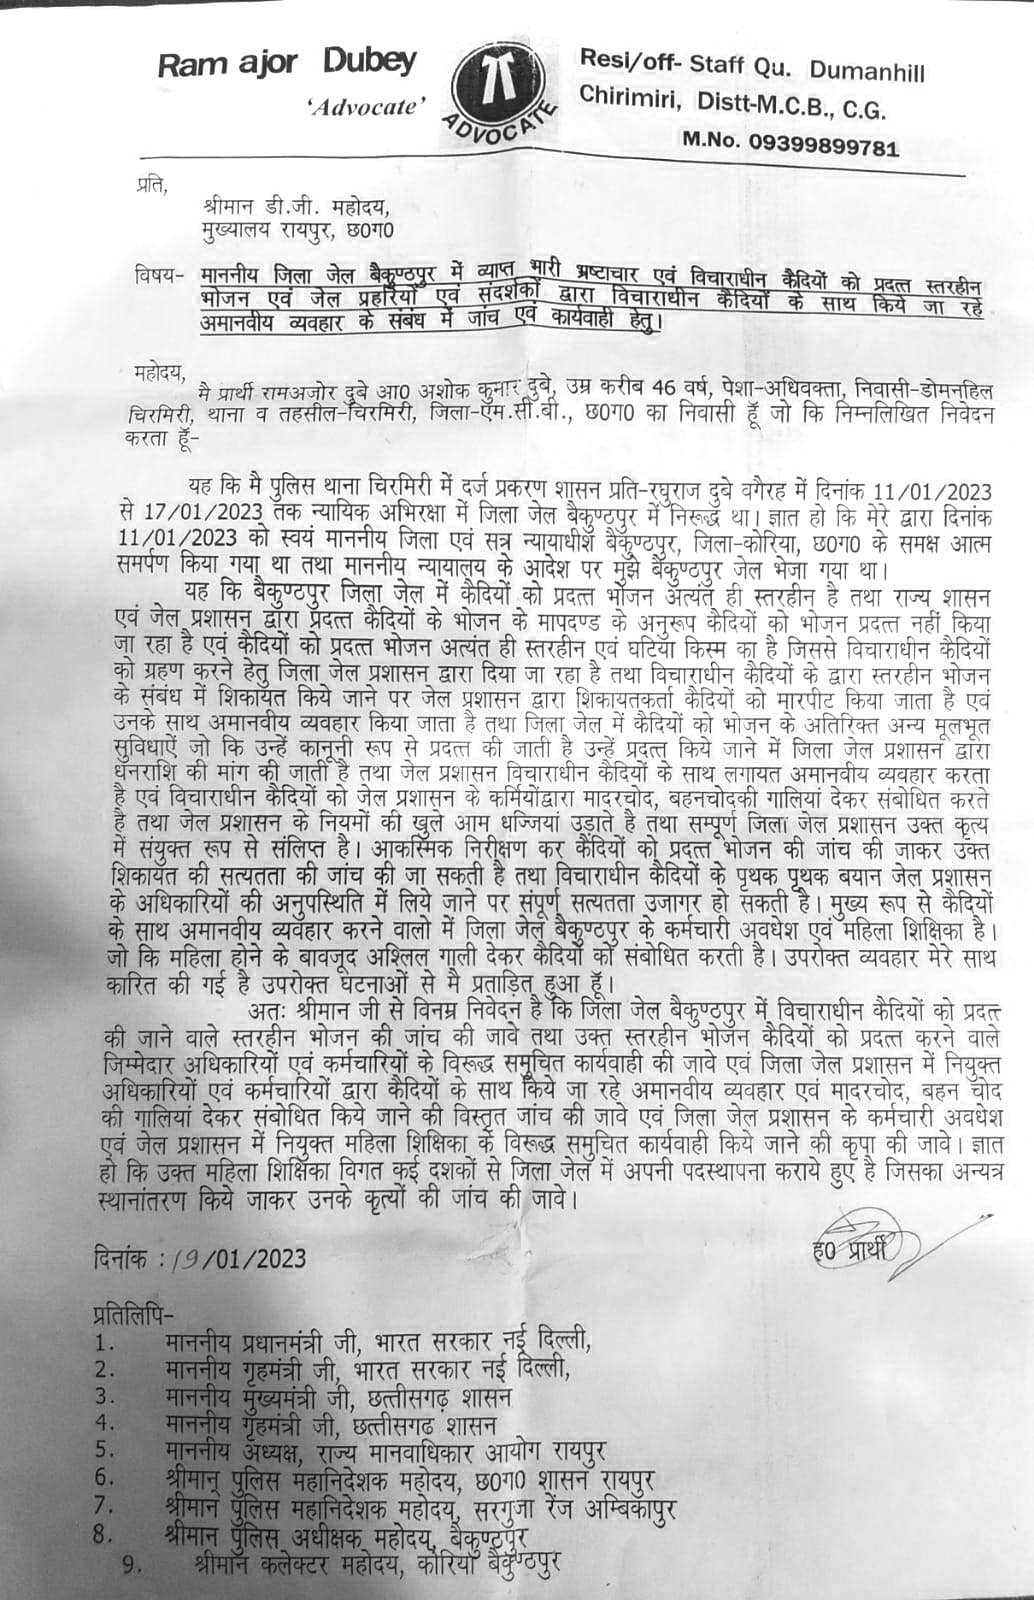 Ram ajor Dubey
'Advocate'
ADVOCATE
Resi/off- Staff Qu. Dumanhill
Chirimiri, Distt-M.C.B., C.G.
M.No. 09399899781
प्रति,
श्रीमान डी.जी. महोदय,
मुख्यालय रायपुर, छ0ग0
विषय- माननीय जिला जेल बैकुण्ठपुर में व्याप्त भारी भ्रष्टाचार एवं विचाराधीन कैदियों को प्रदत्त स्तरहीन
भोजन एवं जेल प्रहरियों एवं संदर्शकों द्वारा विचाराधीन कैदियों के साथ किये जा रहे
अमानवीय व्यवहार के संबंध में जांच एवं कार्यवाही हेतु।
महोदय,
मै प्रार्थी रामअजोर दुबे आ0 अशोक कुमार दुबे, उम्र करीब 46 वर्ष, पेशा-अधिवक्ता, निवासी-डोमनहिल
चिरमिरी, थाना व तहसील-चिरमिरी, जिला-एम.सी.बी., छ0ग0 का निवासी हूॅ जो कि निम्नलिखित निवेदन
करता हॅू-
यह कि मै पुलिस थाना चिरमिरी में दर्ज प्रकरण शासन प्रति-रघुराज दुबे वगैरह में दिनांक 11/01/2023
से 17/01/2023 तक न्यायिक अभिरक्षा में जिला जेल बैकुण्ठपुर में निरूद्ध था। ज्ञात हो कि मेरे द्वारा दिनांक
11/01/2023 को स्वयं माननीय जिला एवं सत्र न्यायाधीश बैकुण्ठपुर, जिला-कोरिया, छ0ग0 के समक्ष आत्म
समर्पण किया गया था तथा माननीय न्यायालय के आदेश पर मुझे बैकुण्ठपुर जेल भेजा गया था।
यह कि बैकुण्ठपुर जिला जेल में कैदियों को प्रदत्त भोजन अत्यंत ही स्तरहीन है तथा राज्य शासन
एवं जेल प्रशासन द्वारा प्रदत्त कैदियों के भोजन के मापदण्ड के अनुरूप कैदियों को भोजन प्रदत्त नहीं किया
जा रहा है एवं कैदियों को प्रदत्त भोजन अत्यंत ही स्तरहीन एवं घटिया किस्म का है जिससे विचाराधीन कैदियों
को ग्रहण करने हेतु जिला जेल प्रशासन द्वारा दिया जा रहा है तथा विचाराधीन कैदियों के द्वारा स्तरहीन भोजन
के संबंध में शिकायत किये जाने पर जेल प्रशासन द्वारा शिकायतकर्ता कैदियों को मारपीट किया जाता है एवं
उनके साथ अमानवीय व्यवहार किया जाता है तथा जिला जेल में कैदियों को भोजन के अतिरिक्त अन्य मूलभूत
सुविधाऐं जो कि उन्हें कानूनी रूप से प्रदत्त की जाती है उन्हें प्रदत्त किये जाने में जिला जेल प्रशासन द्वारा
धनराशि की मांग की जाती है तथा जेल प्रशासन विचाराधीन कैदियों के साथ लगायत अमानवीय व्यवहार करता
है एवं विचाराधीन कैदियों को जेल प्रशासन के कर्मियोंद्वारा मादरचोद, बहनचोदकी गालियां देकर संबोधित करते
है तथा जेल प्रशासन के नियमों की खुले आम धज्जियां उड़ाते है तथा सम्पूर्ण जिला जेल प्रशासन उक्त कृत्य
में संयुक्त रूप से संलिप्त है। आकस्मिक निरीक्षण कर कैदियों को प्रदत्त भोजन की जांच की जाकर उक्त
शिकायत की सत्यतता की जांच की जा सकती है तथा विचाराधीन कैदियों के पृथक पृथक बयान जेल प्रशासन
के अधिकारियों की अनुपस्थिति में लिये जाने पर संपूर्ण सत्यतता उजागर हो सकती है। मुख्य रूप से कैदियों
के साथ अमानवीय व्यवहार करने वालो में जिला जेल बैकुण्ठपुर के कर्मचारी अवधेश एवं महिला शिक्षिका है।
जो कि महिला होने के बावजूद अश्लिल गाली देकर कैदियों को संबोधित करती है। उपरोक्त व्यवहार मेरे साथ
कारित की गई है उपरोक्त घटनाओं से मै प्रताड़ित हुआ हॅू।
अतः श्रीमान जी से विनम्र निवेदन है कि जिला जेल बैकुण्ठपुर में विचाराधीन कैदियों को प्रदत्त
की जाने वाले स्तरहीन भोजन की जांच की जावे तथा उक्त स्तरहीन भोजन कैदियों को प्रदत्त करने वाले
जिम्मेदार अधिकारियों एवं कर्मचारियों के विरूद्ध समुचित कार्यवाही की जावे एवं जिला जेल प्रशासन में नियुक्त
अधिकारियों एवं कर्मचारियों द्वारा कैदियों के साथ किये जा रहे अमानवीय व्यवहार एवं मादरचोद, बहन चोद
की गालियां देकर संबोधित किये जाने की विस्तृत जांच की जावे एवं जिला जेल प्रशासन के कर्मचारी अवधेश
एवं जेल प्रशासन में नियुक्त महिला शिक्षिका के विरूद्ध समुचित कार्यवाही किये जाने की कृपा की जावे। ज्ञात
हो कि उक्त महिला शिक्षिका विगत कई दशकों से जिला जेल में अपनी पदस्थापना कराये हुए है जिसका अन्यत्र
स्थानांतरण किये जाकर उनके कृत्यों की जांच की जावे।
दिनांक : 19/01/2023
ह0 प्रार्थी
प्रतिलिपि-
1. माननीय प्रधानमंत्री जी, भारत सरकार नई दिल्ली,
2. माननीय गृहमंत्री जी, भारत सरकार नई दिल्ली,
3. माननीय मुख्यमंत्री जी, छत्तीसगढ़ शासन
4. माननीय गृहमंत्री जी, छत्तीसगढ शासन
5. माननीय अध्यक्ष, राज्य मानवाधिकार आयोग रायपुर
6. श्रीमान् पुलिस महानिदेशक महोदय, छ0ग0 शासन रायपुर
7. श्रीमान पुलिस महानिदेशक महोदय, सरगुजा रेंज अम्बिकापुर
8. श्रीमान पुलिस अधीक्षक महोदय, बैकुण्ठपुर
9. श्रीमान कलेक्टर महोदय, कोरिया बैकुण्ठपुर